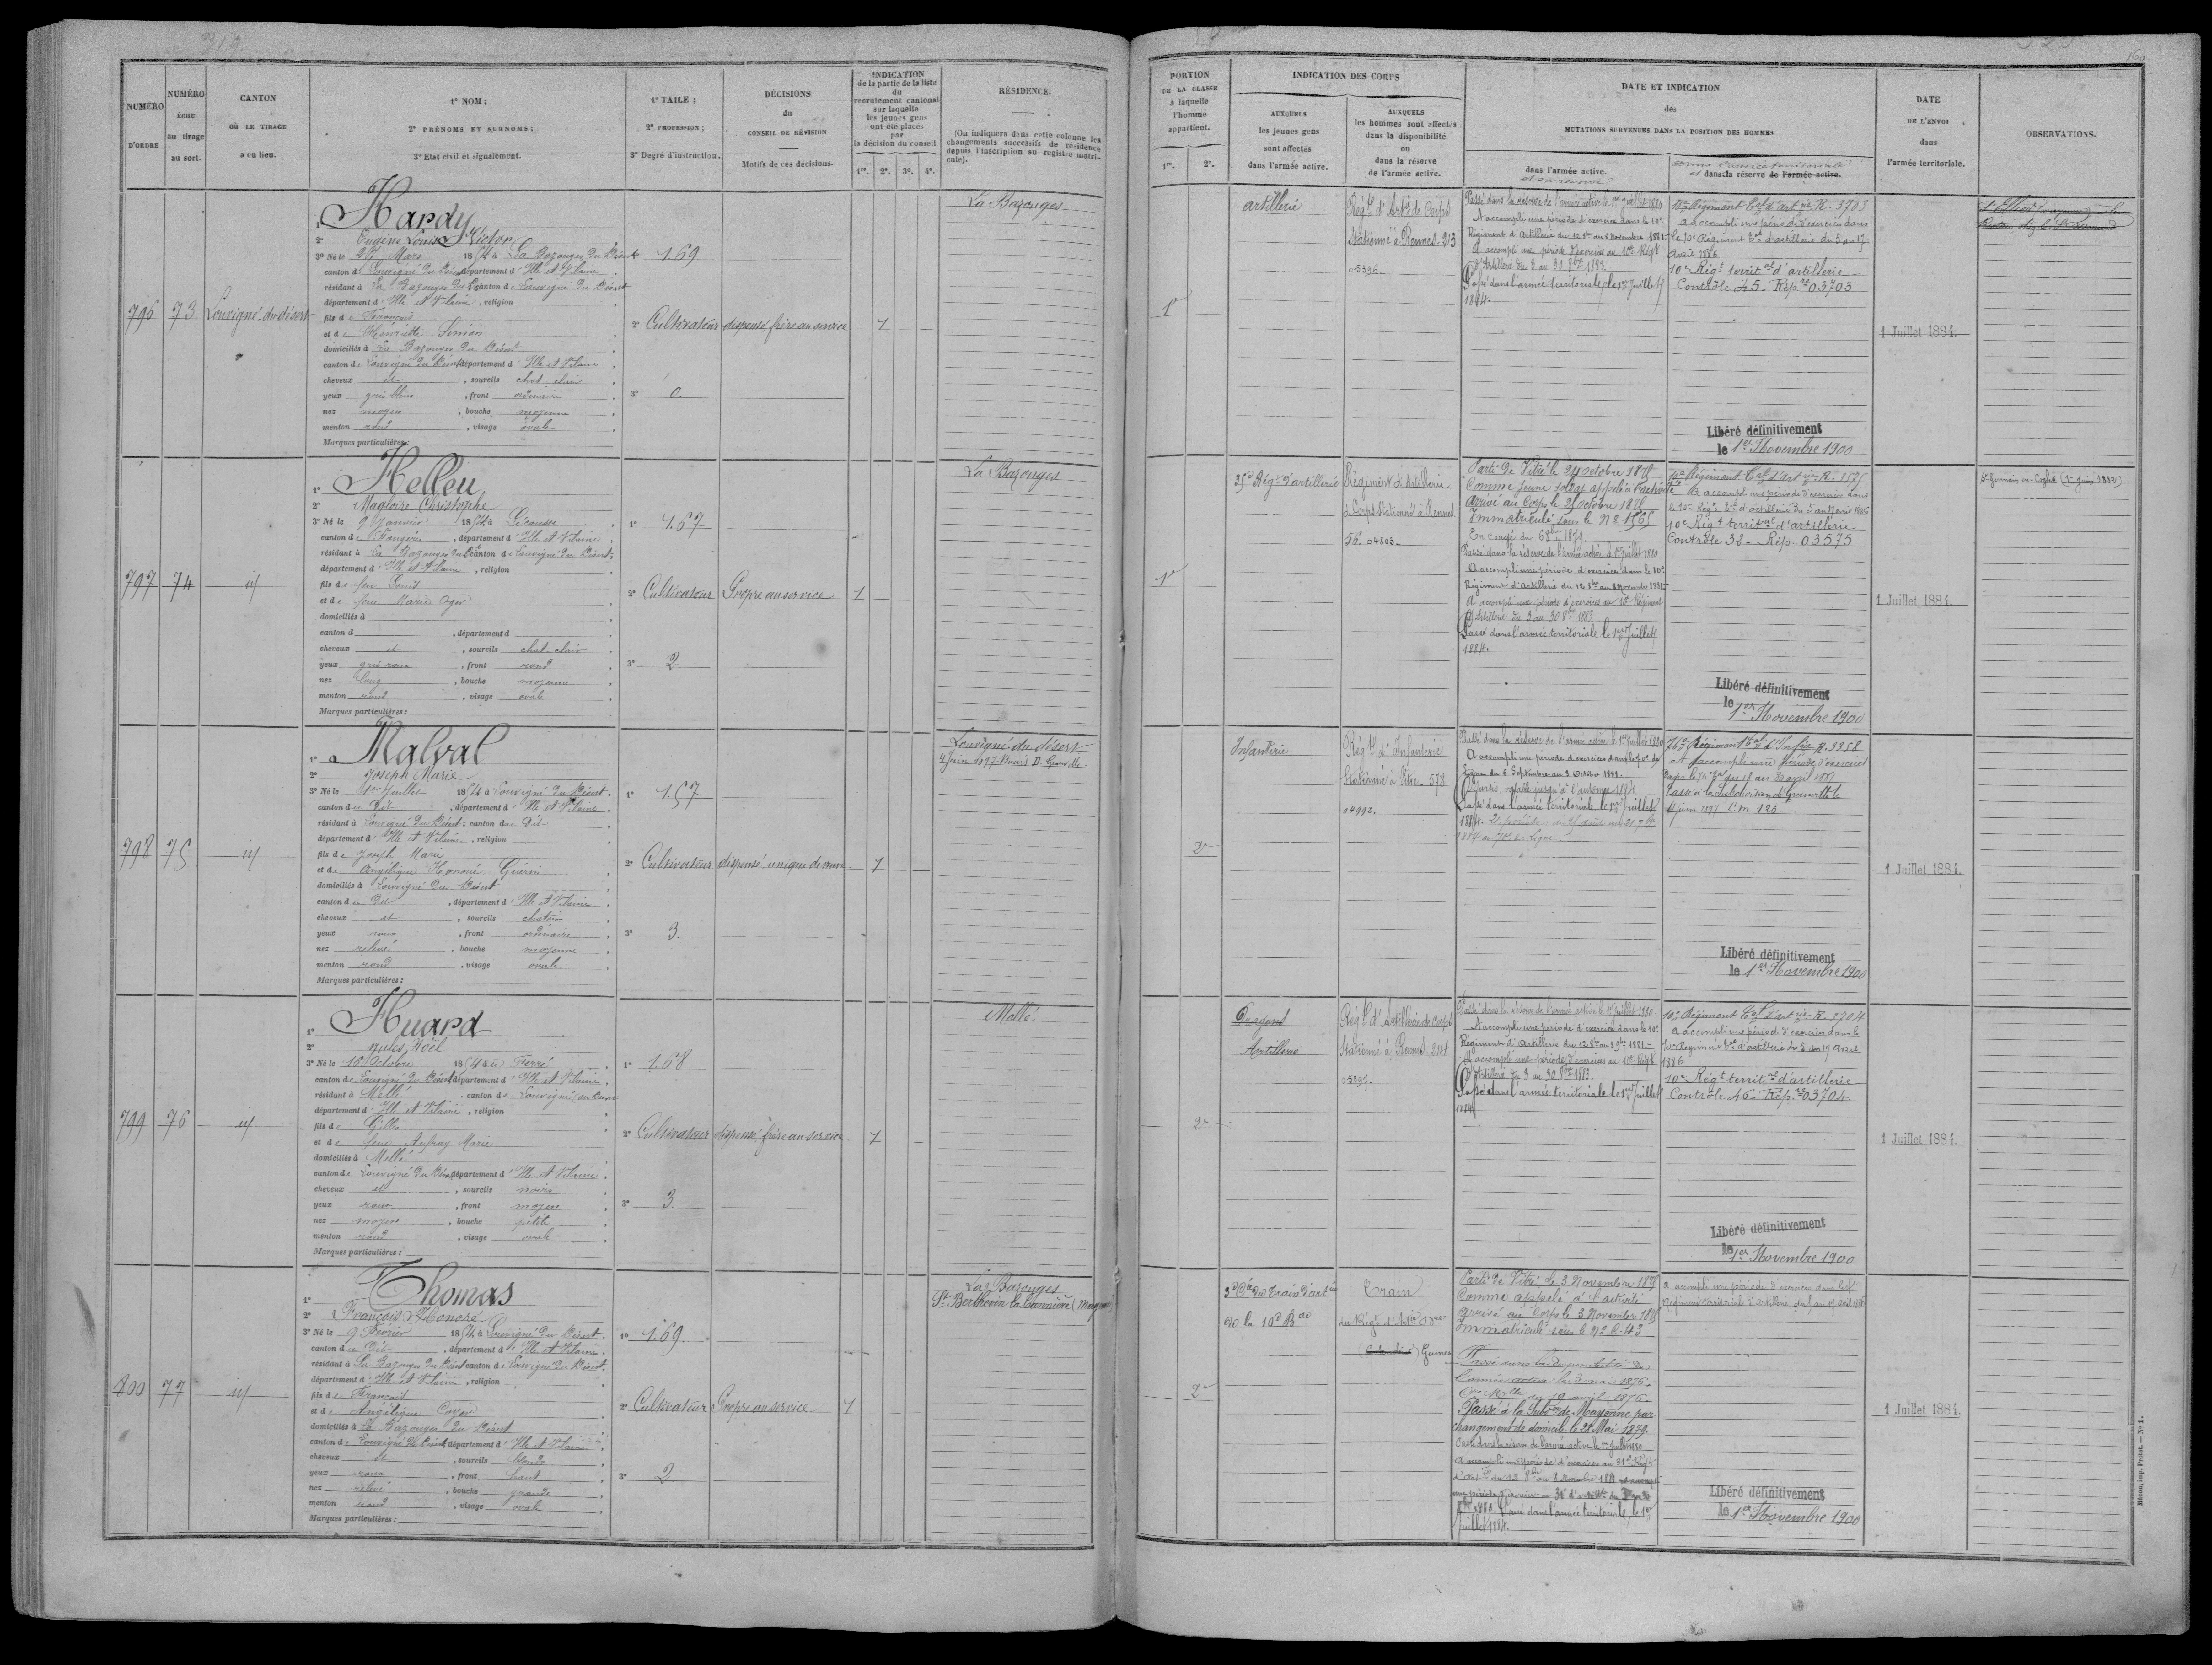 319
320
160
NUMÉRO D'ORDRE
NUMÉRO échu au tirage au sort.
CANTON OÙ LE TIRAGE a eu lieu.
1° NOM;
2° PRÉNOMS ET SURNOMS;
3° Etat civil et signalement.
1° TAILE;
2° PROFESSION;
3° Degré d'instruction.
DÉCISIONS du CONSEIL DE RÉVISION
Motifs de ces décisions.
INDICATION de la partie de la liste du recrutement cantonal sur laquelle les jeunes gens ont été placés par la décision du conseil.
1re. 2e. 3e. 4e.
RÉSIDENCE.
(On indiquera dans cette colonne les changements successifs de résidence depuis l'inscription au registre matricule).
PORTION DE LA CLASSE à laquelle l'homme appartient.
1re. 2e.
INDICATION DES CORPS
AUXQUELS les jeunes gens sont affectés dans l'armée active.
AUXQUELS les hommes sont affectés dans la disponibilité ou dans la réserve de l'armée active.
DATE ET INDICATION des MUTATIONS SURVENUES DANS LA POSITION DES HOMMES
dans l'armée active.
et sa réserve
Dans l'armée territoriale
et dans la réserve de l'armée active.
DATE DE L'ENVOI dans l'armée territoriale.
OBSERVATIONS.
796
73
Louvigné du désert
1° Hardy
2° Eugène Louis Victor
3° Né le 26 Mars 1854 à La Bazouges du Désert
canton de Louvigné du Désert département d'Ille et Vilaine
résidant à La Bazouges du D. canton de Louvigné du Désert
département d'Ille et Vilaine, religion
fils de François
et de Henriette Simon
domiciliés à La Bazouges du Désert
canton de Louvigné du Désert, département d'Ille et Vilaine
cheveux et, sourcils chat. clair
yeux gris bleus, front ordinaire
nez moyen, bouche moyenne
menton rond, visage ovale
Marques particulières:
1.69
2° Cultivateur
3° 0.
dispensé frère au service
1
La Bazouges
1re
artillerie
Régt d'Artie de Corps
Stationné à Rennes. 213
05396.
Passé dans la réserve de l'armée active le 1er juillet 1880
A accompli une période d'exercice dans le 10e
Régiment d'Artillerie du 12 8bre au 8 Novembre 1881
A accompli une période d'exercices au 10e Régt
d'Artillerie du 3 au 30 8bre 1883.
Passé dans l'armée territoriale le 1er Juillet
1884.
10e Régiment tal d'artie R. 3703
a accompli une période d'exercice dans
le 10e Régiment tal d'artillerie du 5 au 17
avril 1886
10e Régt territal d'artillerie
Contrôle 45. Rép. 03703
Libéré définitivement
le 1er Novembre 1900
1 Juillet 1884.
797
74
id
1° Helleu
2° Magloire Christophe
3° Né le 9 Janvier 1854 à Lécousse
canton de Fougères, département d'Ille et Vilaine
résidant à La Bazouges du D. canton de Louvigné du Désert
département d'Ille et Vilaine, religion
fils de feu Louis
et de feue Marie Oger
domiciliés à
canton d, département d
cheveux et, sourcils chat. clair
yeux gris roux, front rond
nez long, bouche moyenne
menton rond, visage ovale
Marques particulières:
1° 1.67
2° Cultivateur
3° 2
Propre au service
1
La Bazouges
1re
35e Régt d'artillerie
Régiment d'Artillerie
de Corps Stationné à Rennes.
56. 04803.
Parti de Vitré le 24 octobre 1875
Comme jeune soldat appelé à l'activité
arrivé au Corps le 25 octobre 1875
Immatriculé sous le N° 1565
En congé du 6 8bre 1879.
Passé dans la réserve de l'armée active le 1er juillet 1880
A accompli une période d'exercices dans le 10e
Régiment d'Artillerie du 12 8bre au 8 Novembre 1881
A accompli une période d'exercices au 10e Régiment
d'Artillerie du 3 au 30 8bre 1883
Passé dans l'armée territoriale le 1er Juillet
1884.
10e Régiment tal d'artie R. 3575
A accompli une période d'exercices dans
le 10e Régt tal d'artillerie du 5 au 17 avril 1886
10e Régt territal d'artillerie
Contrôle 32. Rép. 03575
Libéré définitivement
le 1er Novembre 1900
1 Juillet 1884.
St Germain en Coglès (1er Juin 1882)
798
75
id
1° Malval
2° Joseph Marie
3° Né le 1er Juillet 1854 à Louvigné du Désert
canton du Dit, département d'Ille et Vilaine
résidant à Louvigné du Désert, canton du Dit
département d'Ille et Vilaine, religion
fils de Joseph Marie
et de Angélique Honoré Guérin
domiciliés à Louvigné du Désert
canton du Dit, département d'Ille et Vilaine
cheveux et, sourcils chatain
yeux roux, front ordinaire
nez relevé, bouche moyenne
menton rond, visage ovale
Marques particulières:
1° 1.57
2° Cultivateur
3° 3.
dispensé unique de veuve
1
Louvigné du désert
4 Juin 1897 Granville
2e
Infanterie
Régt d'Infanterie
Stationné à Vitré. 578
04992.
Passé dans la réserve de l'armée active le 1er Juillet 1880
A accompli une période d'exercices dans le 70e de
Ligne du 5 Septembre au 2 Octobre 1881.
Sursis valable jusqu'à l'automne 1884
Passé dans l'armée territoriale le 1er Juillet
1884. 2e période du 25 août au 21 7bre
1884 au 70e de Ligne
76e Régiment tal d'Infie R. 3358
A accompli une période d'exercices
dans le 76e tal du 18 au 30 avril 1887
Passé à la subdivision de Granville le
4 juin 1897 C.M. 125
Libéré définitivement
le 1er Novembre 1900
1 Juillet 1884.
799
76
id
1° Huard
2° Jules Noël
3° Né le 10 Octobre 1854 à Ferré
canton de Louvigné du Désert département d'Ille et Vilaine
résidant à Mellé canton de Louvigné du Désert
département d'Ille et Vilaine, religion
fils de Gilles
et de feue Aufray Marie
domiciliés à Mellé
canton de Louvigné du Désert, département d'Ille et Vilaine
cheveux et, sourcils noirs
yeux roux, front moyen
nez moyen, bouche petite
menton rond, visage ovale
Marques particulières:
1° 1.68
2° Cultivateur
3° 3.
dispensé frère au service
1
Mellé
2e
Dragons
Artillerie
Régt d'Artillerie de Corps
Stationné à Rennes. 214
05397.
Passé dans la réserve de l'armée active le 1er juillet 1880
A accompli une période d'exercice dans le 10e
Régiment d'Artillerie du 12 8bre au 8 9bre 1881.
A accompli une période d'exercices au 10e Régt
d'Artillerie du 3 au 30 8bre 1883.
Passé dans l'armée territoriale le 1er Juillet
1884
10e Régiment tal d'artie R. 3704
a accompli une période d'exercice dans le
10e Régiment tal d'artillerie du 5 au 17 Avril
1886
10e Régt territal d'artillerie
Contrôle 46. Rép. 03704
Libéré définitivement
le 1er Novembre 1900
1 Juillet 1884.
800
77
id
1° Thomas
2° François Honoré
3° Né le 9 Février 1854 à Louvigné du Désert
canton du Dit, département d'Ille et Vilaine
résidant à La Bazouges du Désert canton de Louvigné du Désert
département d'Ille et Vilaine, religion
fils de François
et de Angélique
domiciliés à La Bazouges du Désert
canton de Louvigné du Désert, département d'Ille et Vilaine
cheveux et, sourcils blonds
yeux roux, front haut
nez relevé, bouche grande
menton rond, visage ovale
Marques particulières:
1° 1.69
2° Cultivateur
3° 2
Propre au service
1
La Bazouges
St Berthevin la Tannière (Mayenne)
2e
3e Cie du Train d'artie
de la 10e Bde
Train
du Régt d'Artie
Parti de Vitré le 3 Novembre 1875
Comme appelé à l'activité
arrivé au Corps le 3 Novembre 1875
Immatriculé sous le N°
Passé dans la disponibilité de
l'armée active le 3 mai 1876.
du 19 avril 1876.
Passé à la Subdon de Mayenne par
changement de domicile le 22 Mai 1879.
Passé dans la réserve de l'armée active le 1er juillet 1880
A accompli une période d'exercices au 31e Régt
d'Artie du 12 8bre au 8 Novembre 1881
Passé dans l'armée territoriale le 1er
Juillet 1884.
a accompli une période d'exercices dans le
Régiment territorial d'Artillerie
Libéré définitivement
le 1er Novembre 1900
1 Juillet 1884.
Mâcon, imp. Protat. — N° 1.